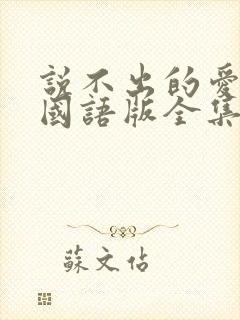 説不出的愛
國語版全集
蘇文佔